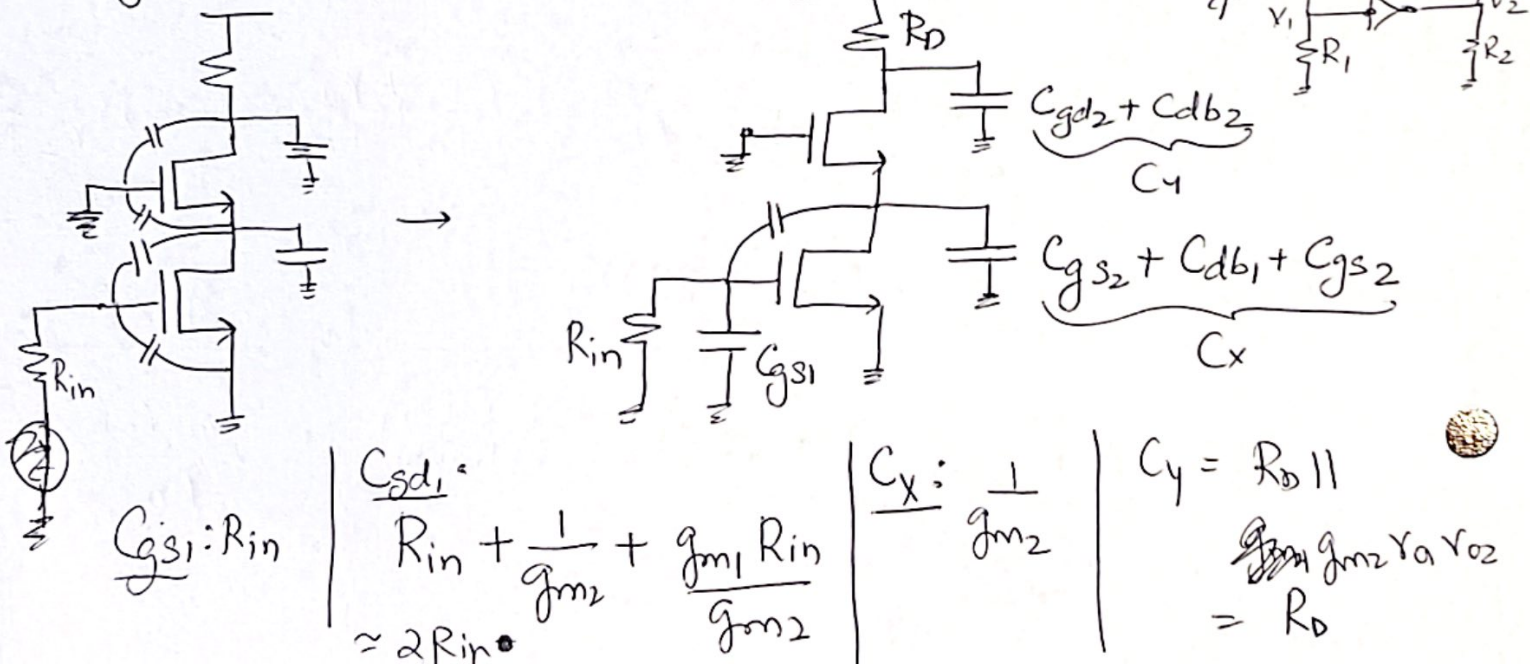 R_D
V_1
V_2
R_1
R_2
C_{gd_2} + C_{db_2}
C_y
→
C_{gs_2} + C_{db_1} + C_{gs_2}
C_x
R_{in}
R_{in}
C_{gs_1}
C_{gs_1}: R_{in}
C_{gd_1}:
R_{in} + \frac{1}{g_{m_2}} + \frac{g_{m_1} R_{in}}{g_{m_2}}
≈ 2R_{in}
C_x: \frac{1}{g_{m_2}}
C_y = R_D ||
g_{m_2} r_{o1} r_{o2}
= R_D